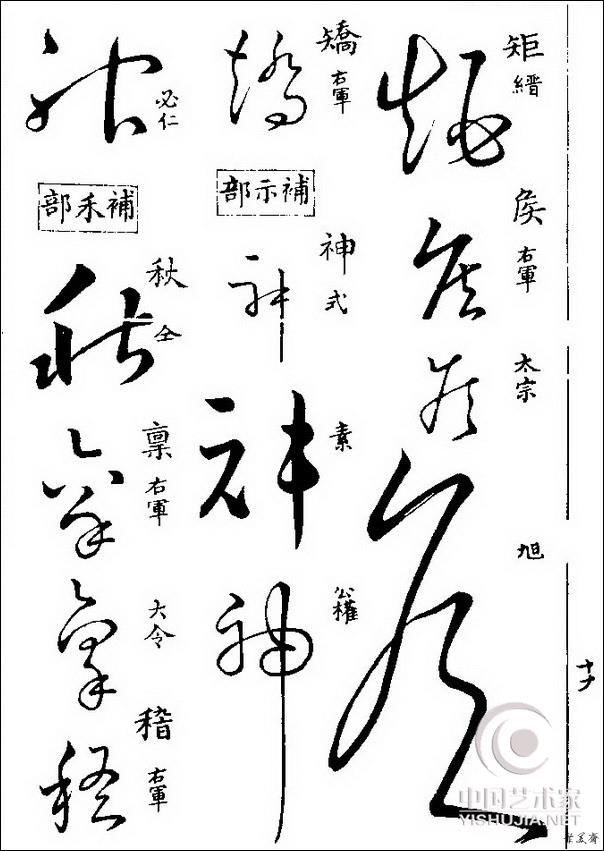 矩 縉
侯 右軍
太宗
旭
矯 右軍
補示部
神 式
素
公權
必仁
補禾部
秋 全
稟 右軍
大令
稽 右軍
十六
中国艺术家
YISHUJIA.COM